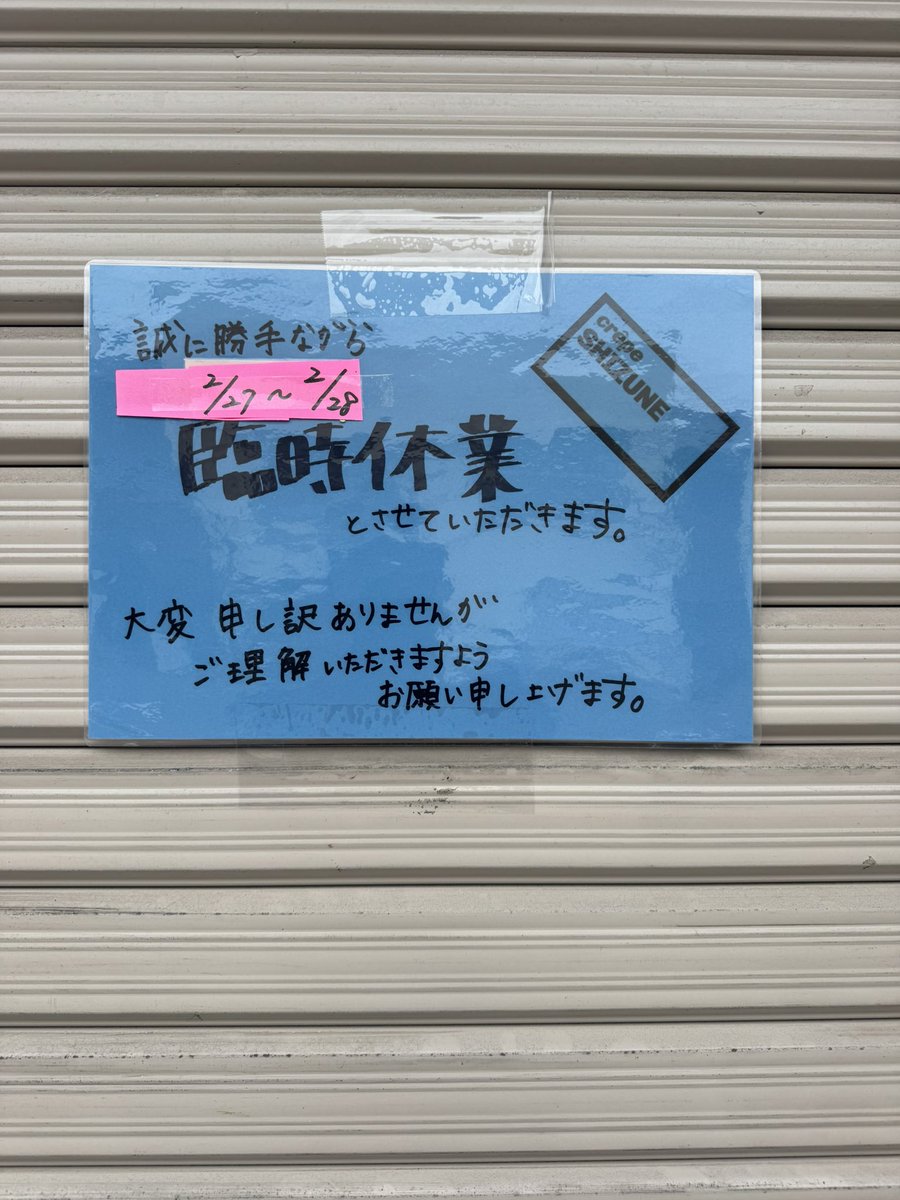 誠に勝手ながら
2/27〜2/28
臨時休業
とさせていただきます。
大変 申し訳ありませんが
ご理解いただきますよう
お願い申し上げます。
crêpe
SHIZUNE